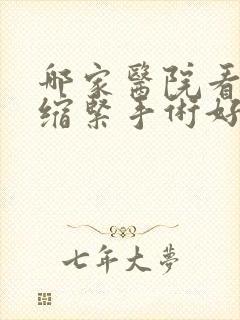 哪家醫院看
縮緊手術好
七年大夢